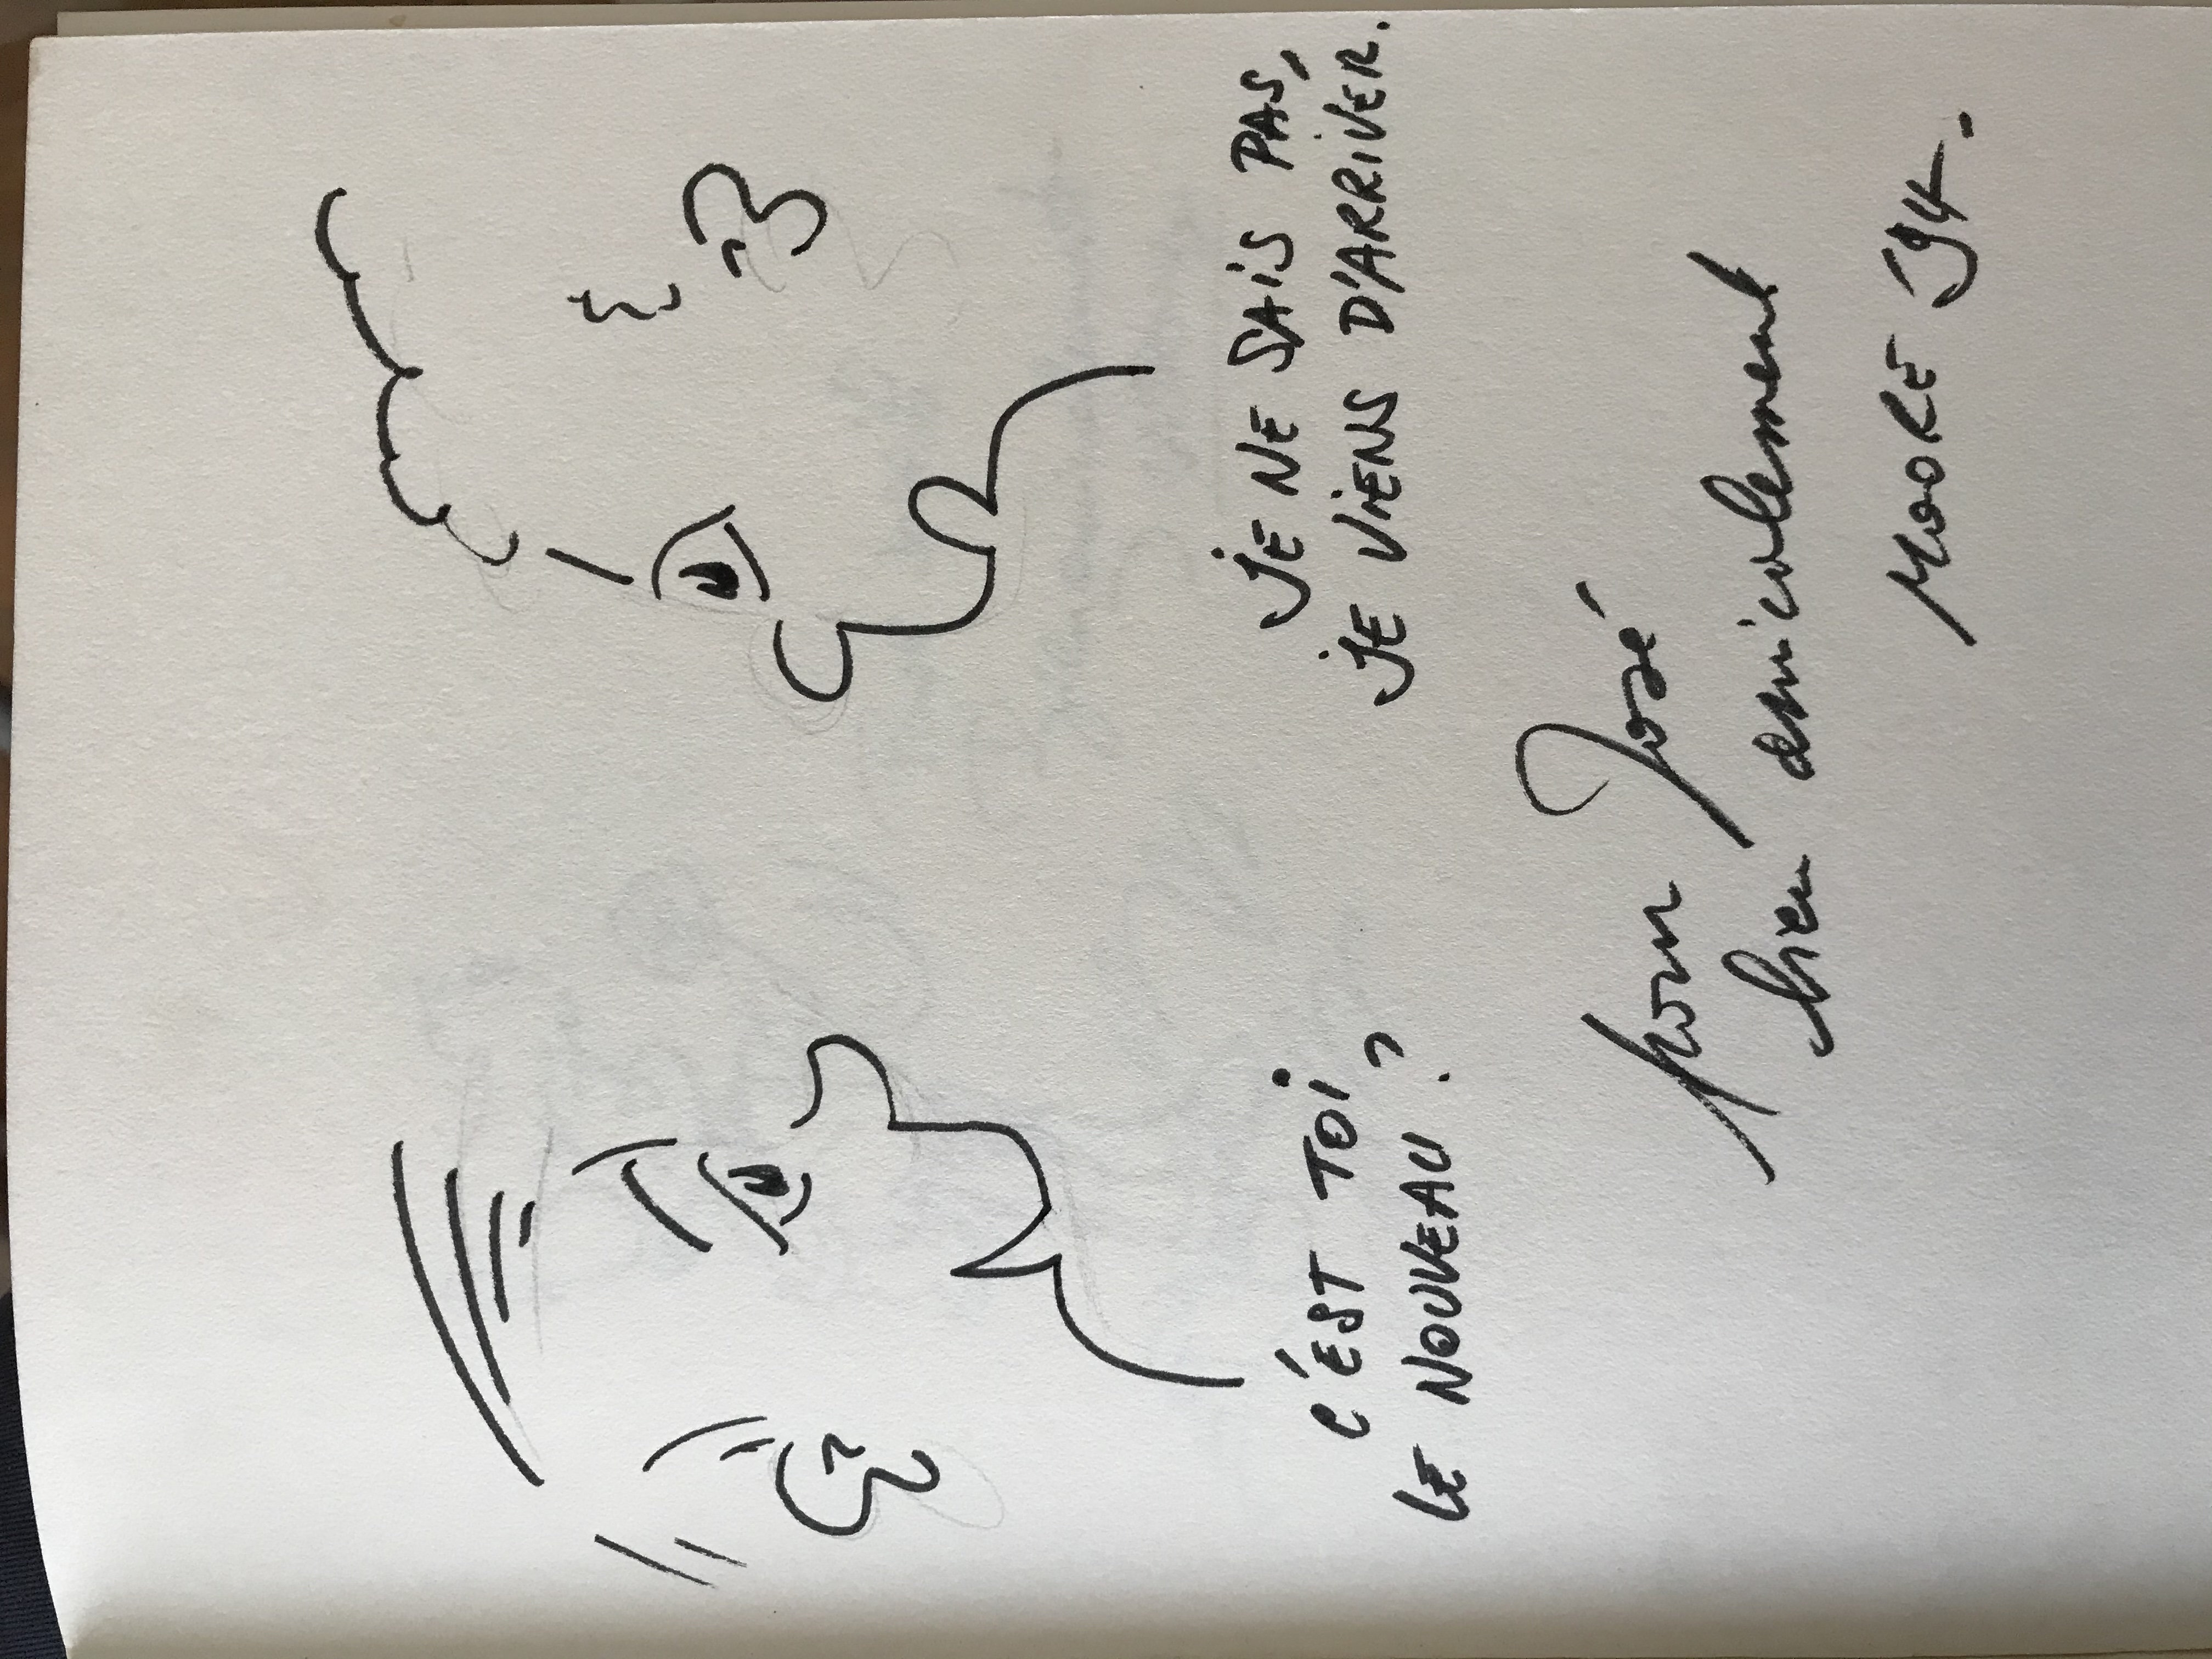 C'EST TOI
LE NOUVEAU ?
JE NE SAIS PAS,
JE VIENS D'ARRIVER.
pour José
bien amicalement
MOORE '94.